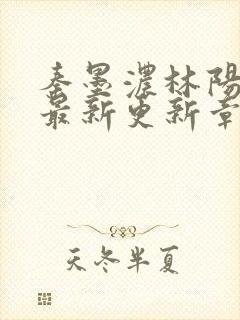 秦墨濃林陽
最新更新章
天冬半夏